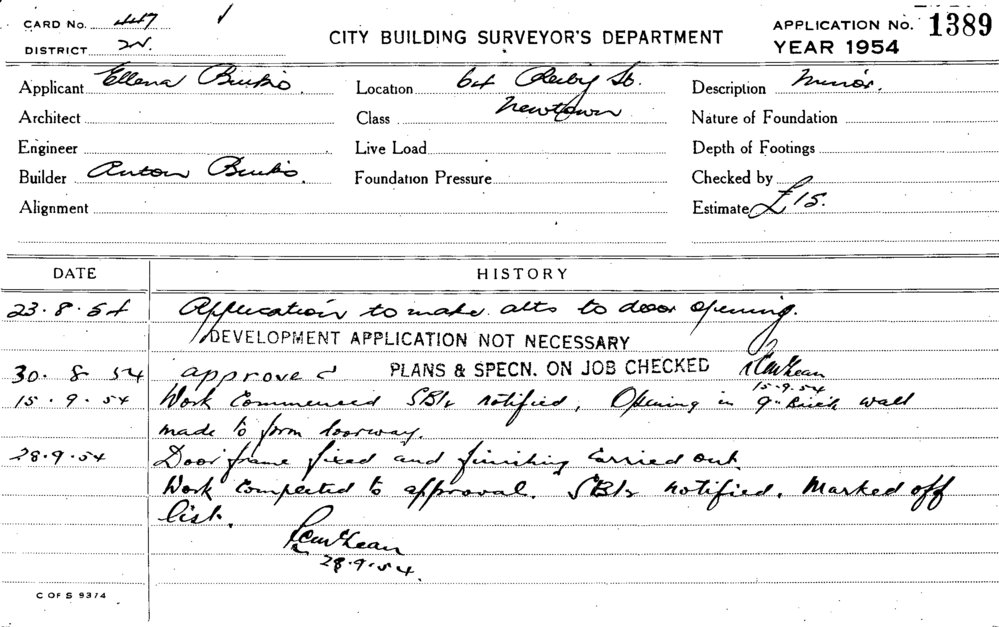 CARD No. 447
DISTRICT 2N.
CITY BUILDING SURVEYOR'S DEPARTMENT
APPLICATION No. 1389
YEAR 1954
Applicant Ellena
Location 64 Reiby St.
Description Minor.
Architect
Class Newtown
Nature of Foundation
Engineer
Live Load
Depth of Footings
Builder Anton
Foundation Pressure
Checked by
Alignment
Estimate £15.
DATE HISTORY
23.8.54 Application to make alts to door opening.
DEVELOPMENT APPLICATION NOT NECESSARY
30.8.54 approved PLANS & SPECN. ON JOB CHECKED
15.9.54
15.9.54 Work Commenced notified. Opening in 9" Brick wall
made to form doorway.
28.9.54 Door frame fixed and finishing carried out.
Work Completed to approval. notified. Marked off
list.
28.9.54.
C OF S 9374